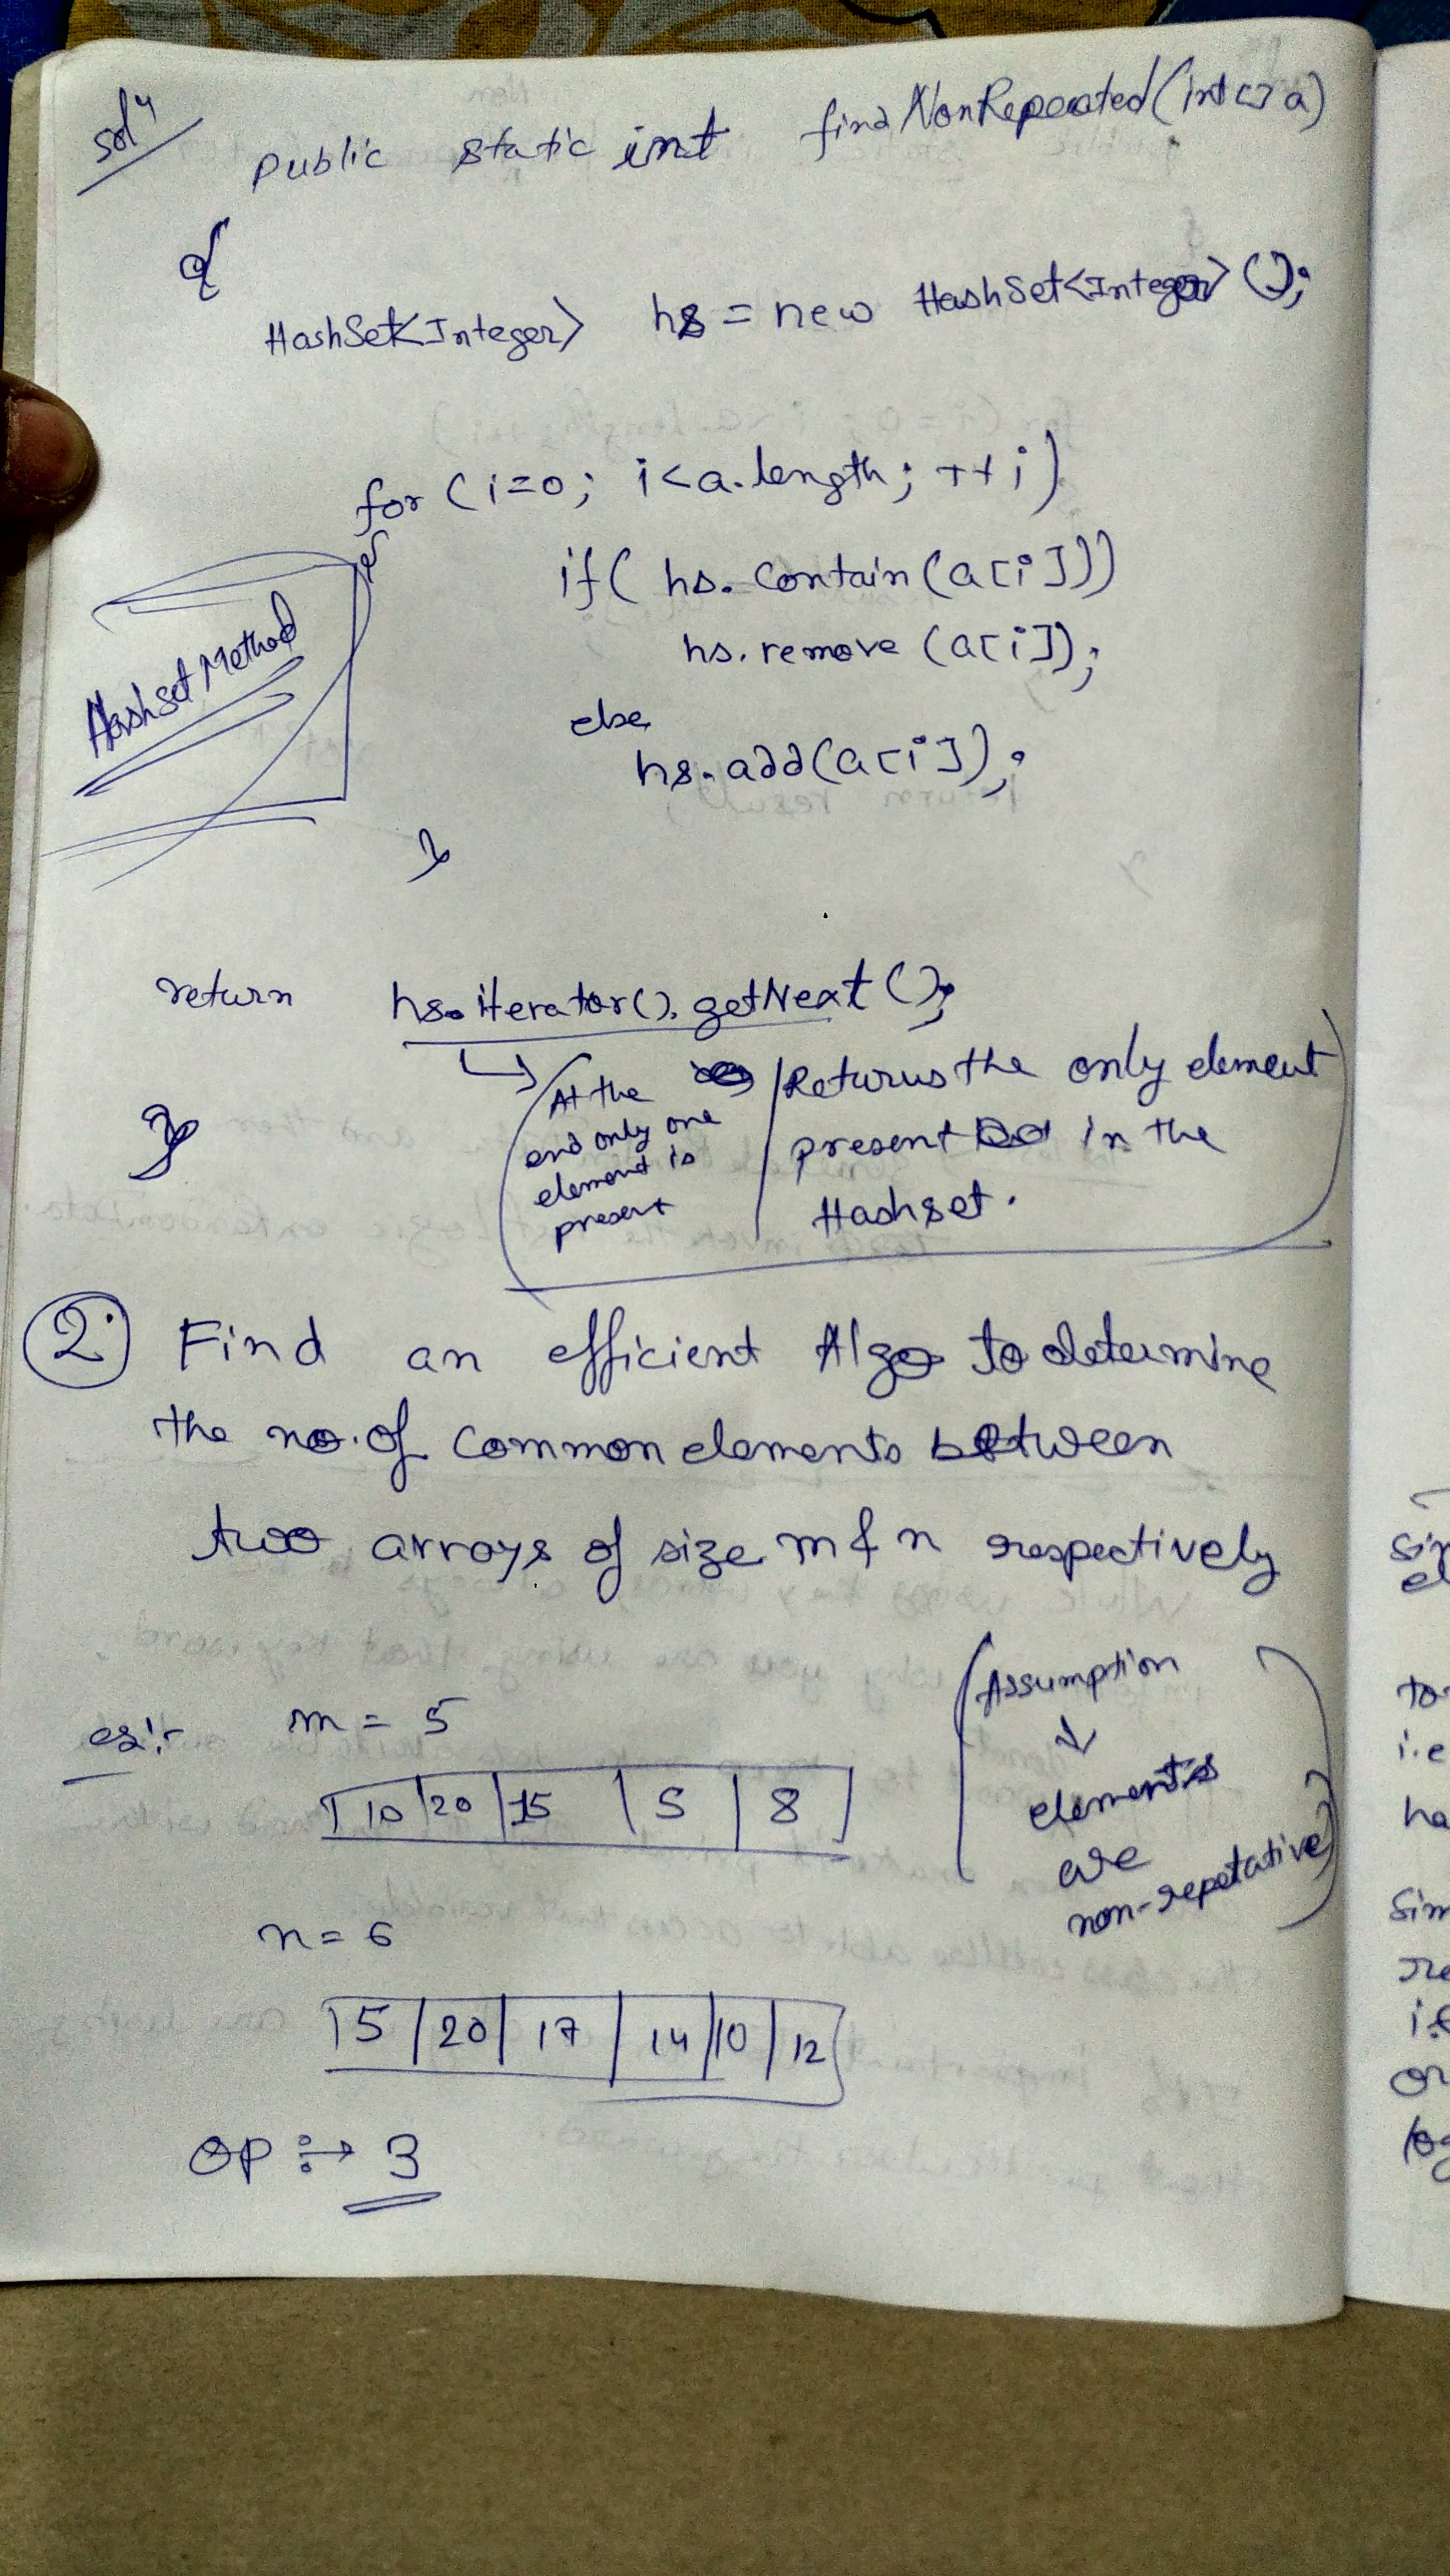 solⁿ
public static int findNonRepeated(int[] a)
{
HashSet<Integer> hs = new HashSet<Integer>();
for (i=0; i<a.length; ++i)
{
if( hs.contain(a[i]))
hs.remove (a[i]);
else
hs.add(a[i]);
}
Hashset Method
return hs.iterator().getNext();
}
At the
end only one
element is
present
Returns the only element
present in the
Hashset.
2. Find an efficient Algo to determine
the no. of common elements between
two arrays of size m & n respectively
Assumption
↓
elements
are
non-repetative
ex:- m = 5
10 20 15 5 8
n = 6
15 20 17 14 10 12
OP :→ 3
i.e